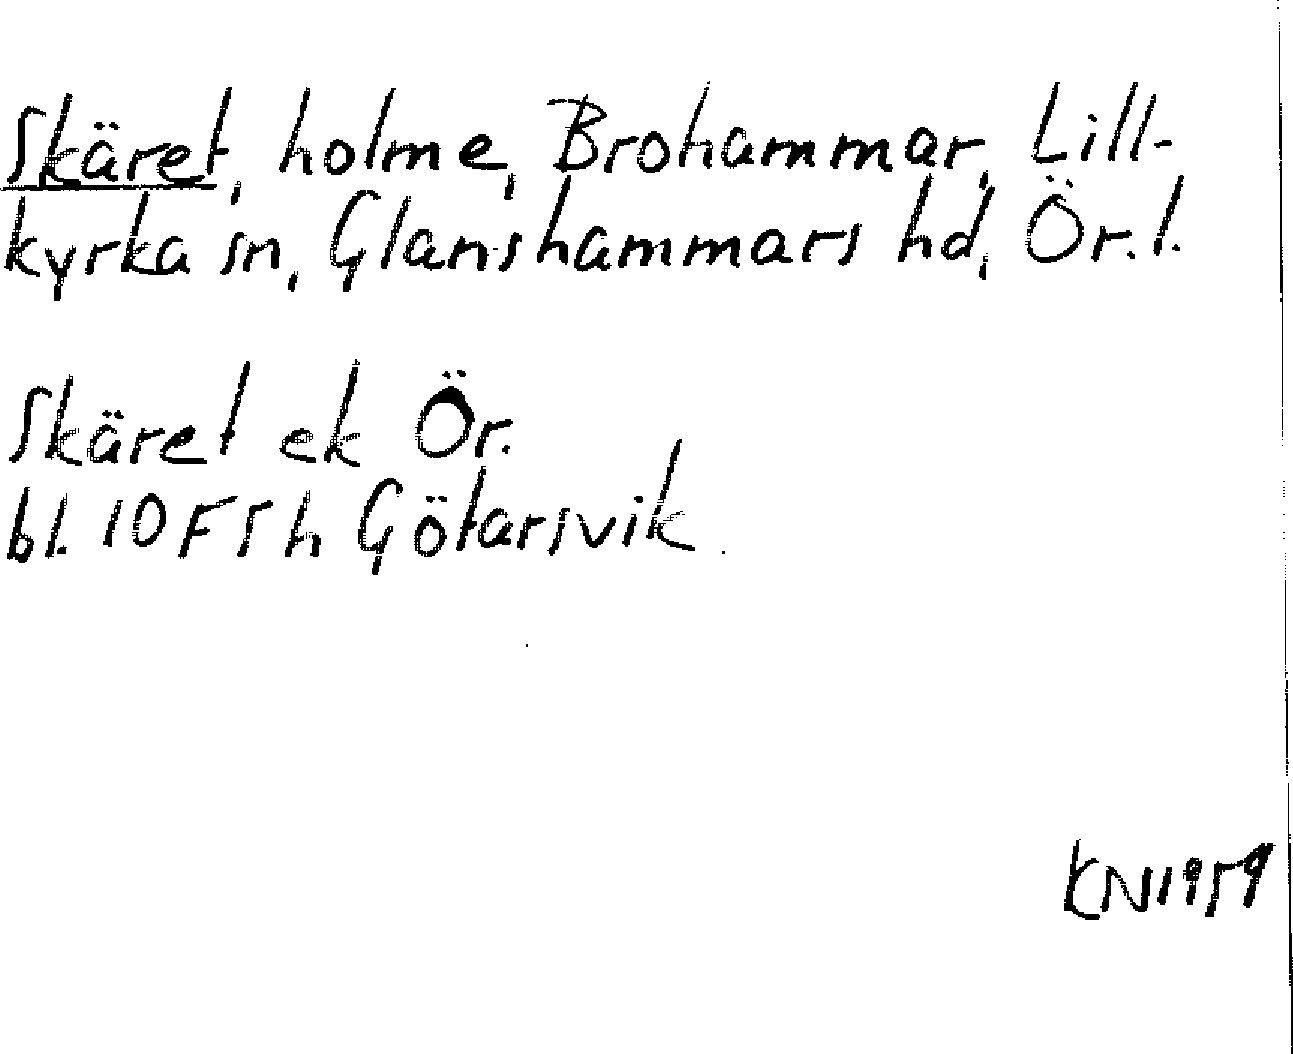 Skäret, holme, Brohammar, Lill-
kyrka sn, Glanshammars hd, Ör. l.
Skäret ek Ör.
bl. 10F5h Götarsvik.
KN1959